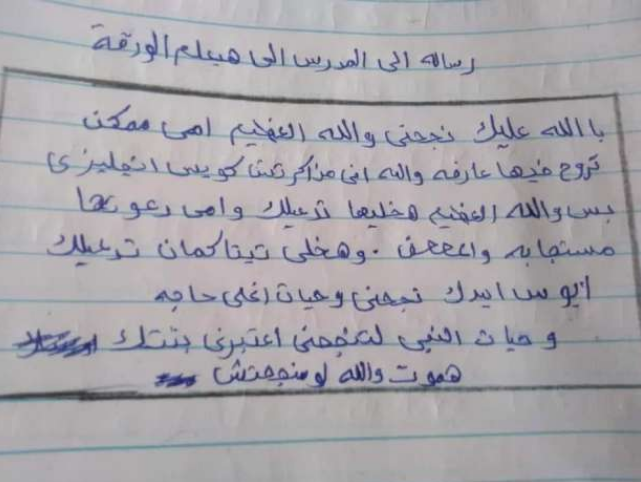 رساله الى المدرس الى هيعلم الورقة
باالله عليك نجحنى والله العظيم امى ممكن
تروح فيها عارفه والله انى مذاكرتش كويس انجليزى
بس والله العظيم هخليها تدعيلك وامى دعوتها
مستجابه وااععف . وهخلى تيتا كمان تدعيلك
ابوس ايدك نجحنى وحيات اغلى حاجه
وحيات النبى لتنجحنى اعتبرنى بنتك
هموت والله لو منجحتش